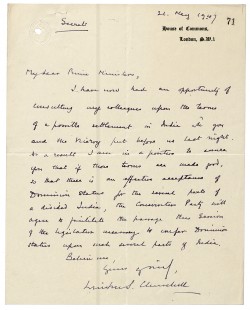 Secret
21. May 1947
71
House of Commons,
London, S.W.1.
My dear Prime Minister,
I have now had an opportunity of
consulting my colleagues upon the terms
of a possible settlement in India
and the Viceroy put before us last night.
As a result I am in a position to assure
you that if those terms are made good,
so that there is an effective acceptance of
Dominion Status for the several parts of
a divided India, the Conservative Party will
agree to facilitate the passage this Session
of the legislation necessary to confer Dominion
status upon such several parts of India.
Believe me,
Winston S. Churchill